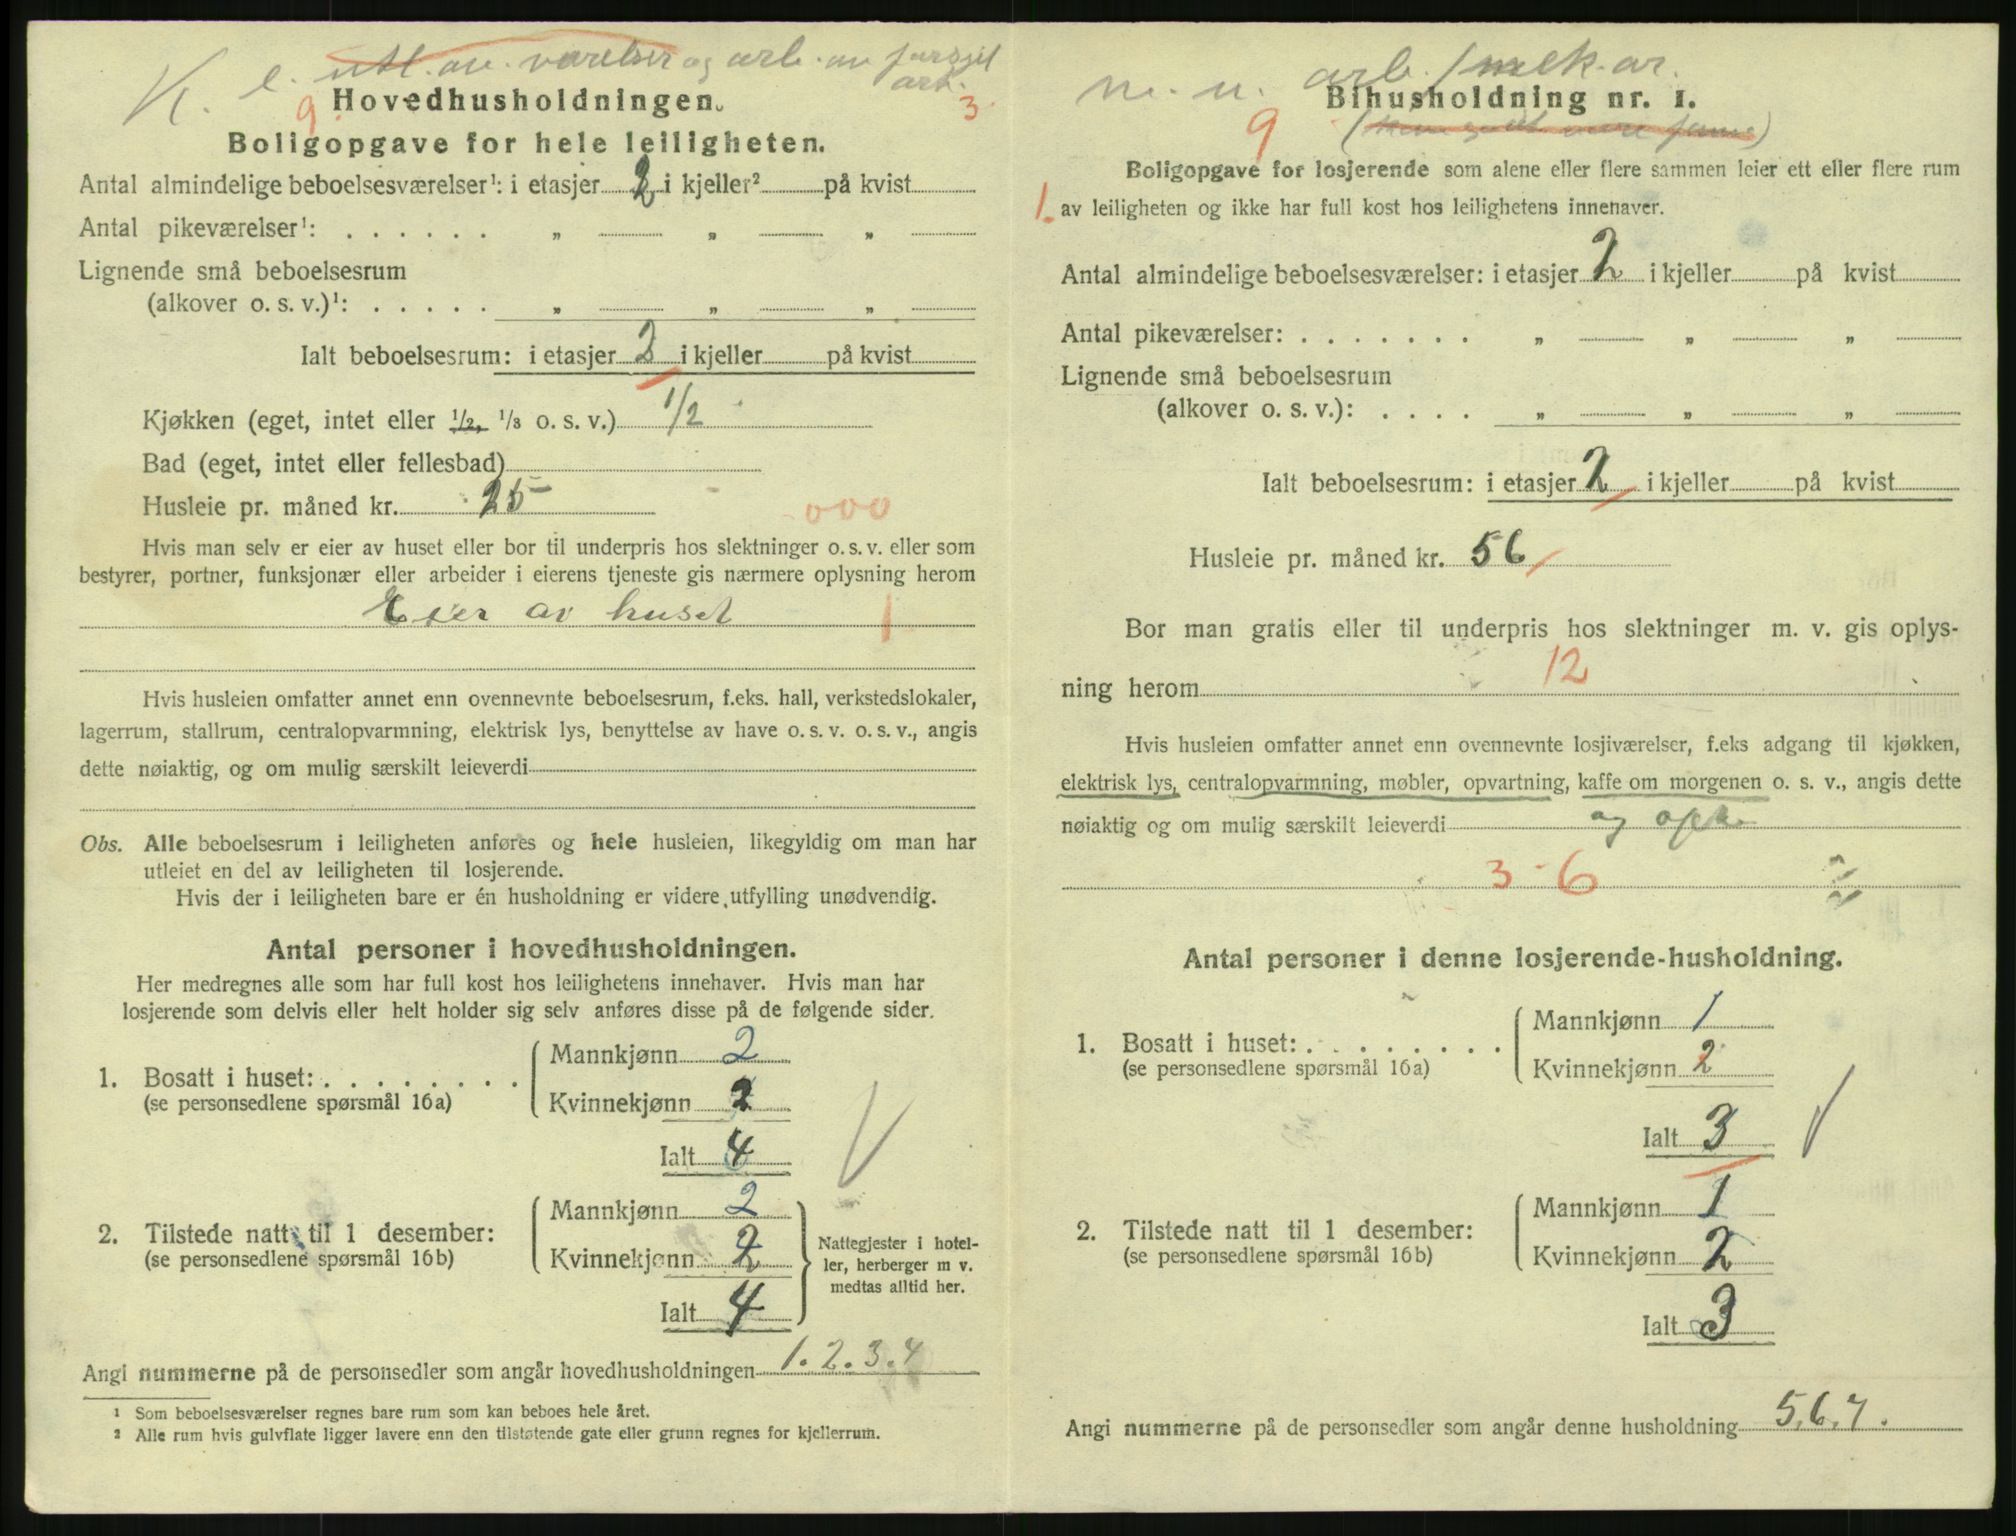 K. e. utl. av. værelser og arb. av
9. Hovedhusholdningen. 3.
Boligopgave for hele leiligheten.
Antal almindelige beboelsesværelser¹: i etasjer 2 i kjeller² på kvist
Antal pikeværelser¹: . . . . . . „ „ „
Lignende små beboelsesrum
(alkover o. s. v.)¹: . . . . . „ „ „
Ialt beboelsesrum: i etasjer 2 i kjeller på kvist
Kjøkken (eget, intet eller 1/2, 1/3 o. s. v.) 1/2
Bad (eget, intet eller fellesbad)
Husleie pr. måned kr. 25-
000
Hvis man selv er eier av huset eller bor til underpris hos slektninger o. s. v. eller som
bestyrer, portner, funksjonær eller arbeider i eierens tjeneste gis nærmere oplysning herom
Eier av huset 1
Hvis husleien omfatter annet enn ovennevnte beboelsesrum, f.eks. hall, verkstedslokaler,
lagerrum, stallrum, centralopvarmning, elektrisk lys, benyttelse av have o. s. v. o. s. v., angis
dette nøiaktig, og om mulig særskilt leieverdi
Obs. Alle beboelsesrum i leiligheten anføres og hele husleien, likegyldig om man har
utleiet en del av leiligheten til losjerende.
Hvis der i leiligheten bare er én husholdning er videre utfylling unødvendig.
Antal personer i hovedhusholdningen.
Her medregnes alle som har full kost hos leilighetens innehaver. Hvis man har
losjerende som delvis eller helt holder sig selv anføres disse på de følgende sider.
Mannkjønn 2
1. Bosatt i huset: . . . . . . . .
(se personsedlene spørsmål 16a)
Kvinnekjønn 2
Ialt 4
Mannkjønn 2
2. Tilstede natt til 1 desember:
(se personsedlene spørsmål 16b)
Kvinnekjønn 2
Ialt 4
Nattegjester i hotel-
ler, herberger m v.
medtas alltid her.
Angi nummerne på de personsedler som angår hovedhusholdningen 1. 2. 3. 4
¹ Som beboelsesværelser regnes bare rum som kan beboes hele året.
² Alle rum hvis gulvflate ligger lavere enn den tilstøtende gate eller grunn regnes for kjellerrum.
m. u. arb. / mek. ar.
Bihusholdning nr. 1.
9
Boligopgave for losjerende som alene eller flere sammen leier ett eller flere rum
1. av leiligheten og ikke har full kost hos leilighetens innehaver.
Antal almindelige beboelsesværelser: i etasjer 2 i kjeller på kvist
Antal pikeværelser: . . . . . . . „ „ „
Lignende små beboelsesrum
(alkover o. s. v.): . . . . „ „ „
Ialt beboelsesrum: i etasjer 2 i kjeller på kvist
Husleie pr. måned kr. 56
Bor man gratis eller til underpris hos slektninger m. v. gis oplys-
ning herom 12
Hvis husleien omfatter annet enn ovennevnte losjiværelser, f.eks adgang til kjøkken,
elektrisk lys, centralopvarmning, møbler, opvartning, kaffe om morgenen o. s. v., angis dette
nøiaktig og om mulig særskilt leieverdi og
3 - 6
Antal personer i denne losjerende-husholdning.
Mannkjønn 1
1. Bosatt i huset: . . . . . . . .
(se personsedlene spørsmål 16a)
Kvinnekjønn 2
Ialt 3
Mannkjønn 1
2. Tilstede natt til 1 desember:
(se personsedlene spørsmål 16b)
Kvinnekjønn 2
Ialt 3
Angi nummerne på de personsedler som angår denne husholdning 5, 6, 7.